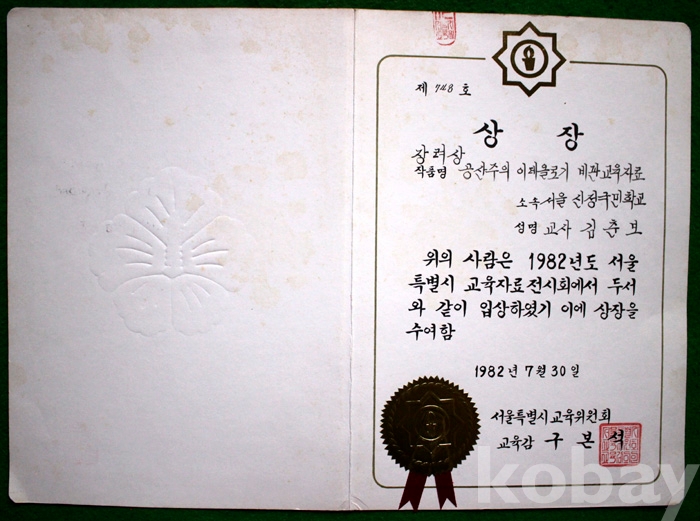 제 748 호
상 장
장려상
작품명 공산주의 이데올로기 비판교육자료
소속 서울 신정국민학교
성명 교사 김춘보
위의 사람은 1982년도 서울
특별시 교육자료전시회에서 두서
와 같이 입상하였기 이에 상장을
수여함
1982년 7월 30일
서울특별시교육위원회
교육감 구 본 석
kobay